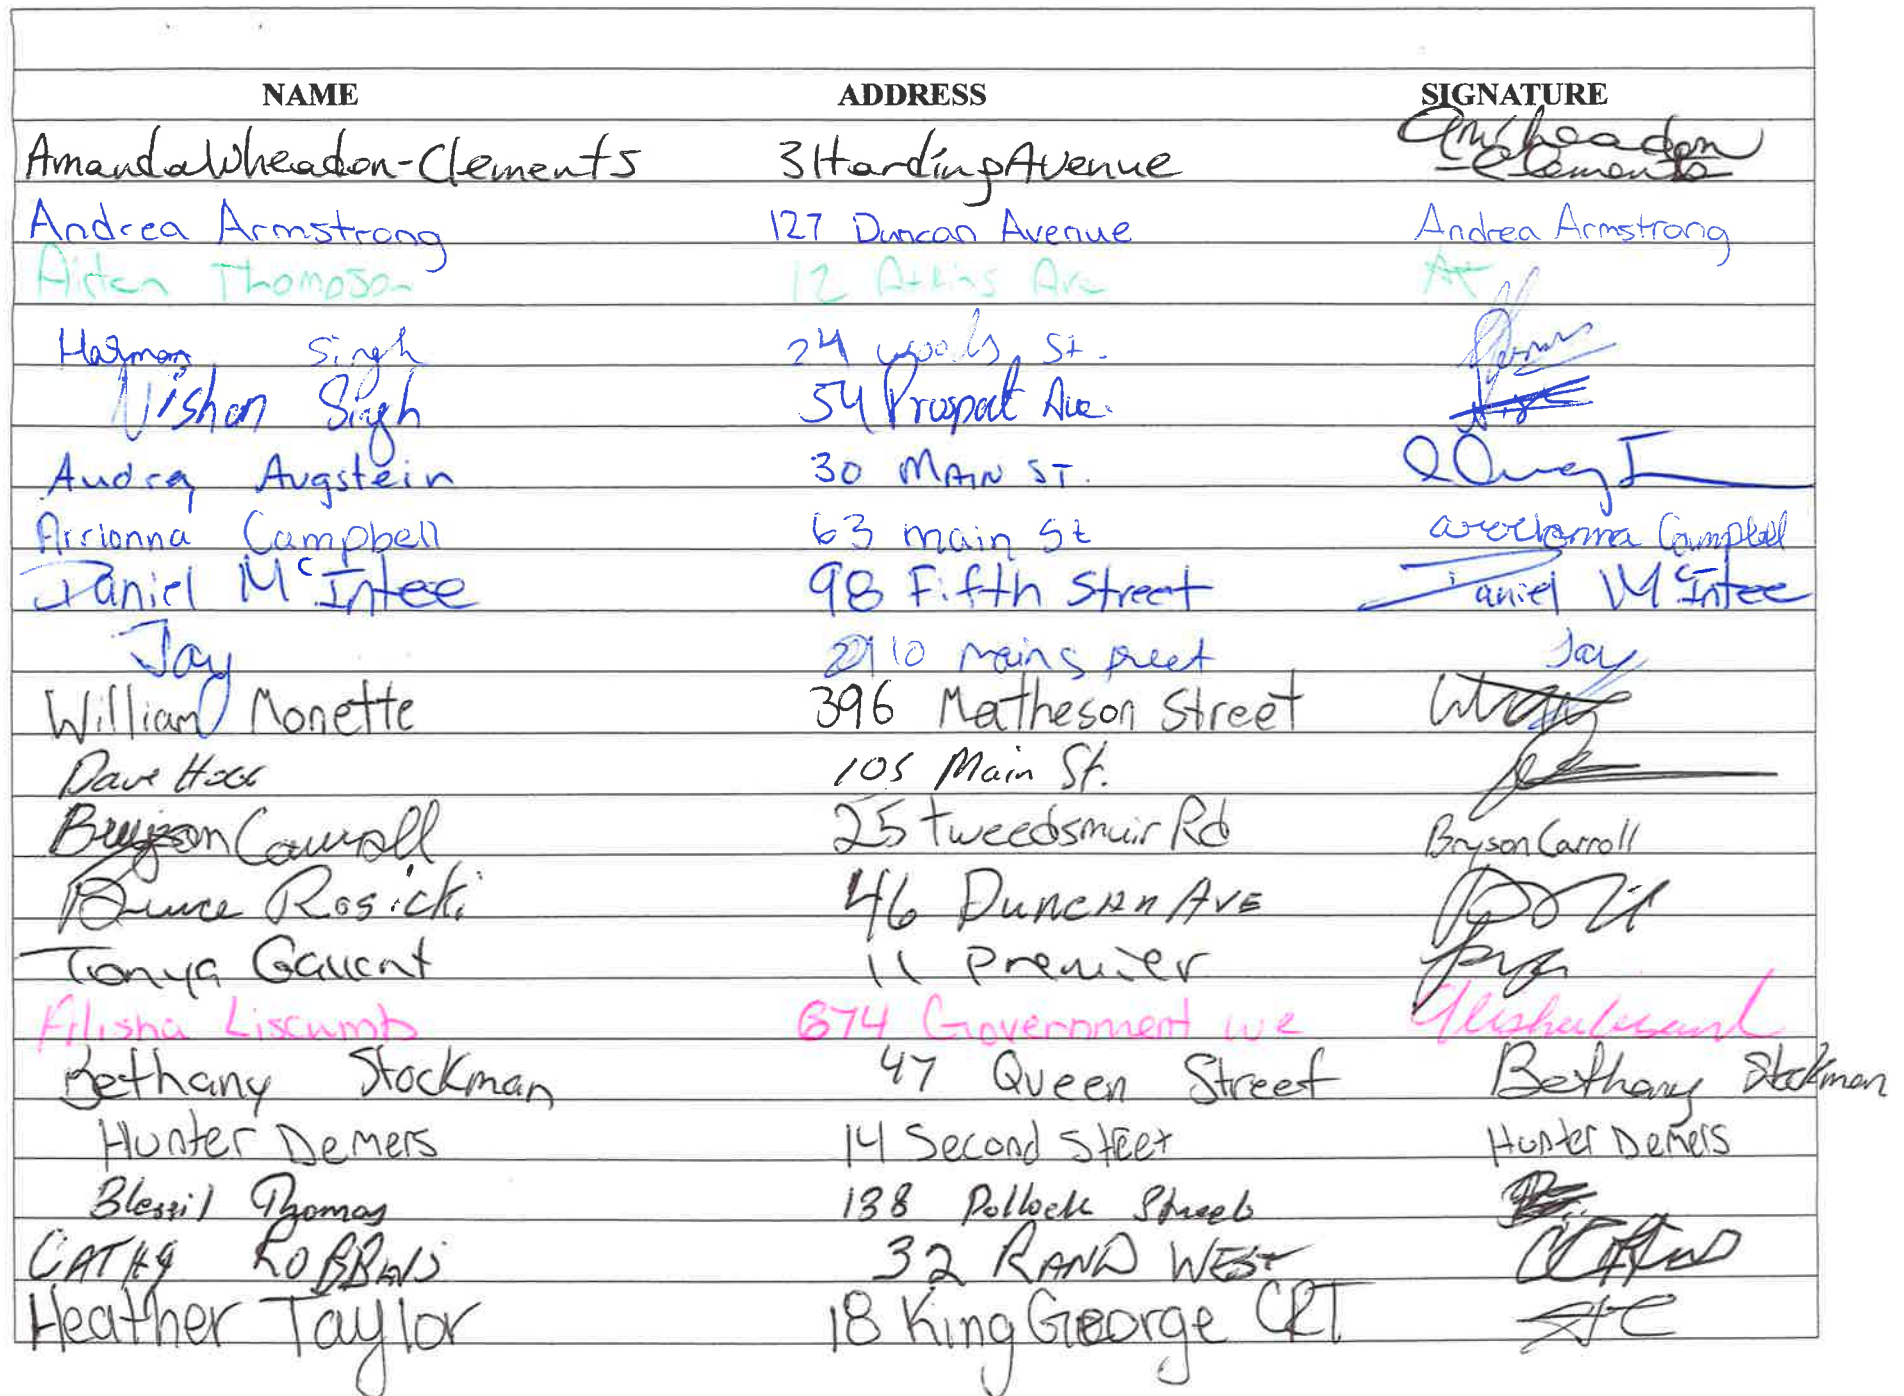 NAME ADDRESS SIGNATURE
Amanda Wheadon-Clements 3 Harding Avenue AmWheadon
-Clements
Andrea Armstrong 127 Duncan Avenue Andrea Armstrong
Aiden Thompson 12 Atkins Ave AT
Harman Singh 24 woods St.
Nishan Singh 54 Prospect Ave.
Audrey Augstein 30 MAIN ST.
Arrionna Campbell 63 main St arrionna Campbell
Daniel McIntee 98 Fifth Street Daniel McIntee
Jay 10 main street Jay
William Monette 396 Matheson Street
Dave 105 Main St.
Bryson Carroll 25 tweedsmuir Rd Bryson Carroll
Bruce Rosicki 46 DUNCAN AVE
Tonya Gauent 11 Premier
Alisha Liscumb 674 Government Alisha Liscumb
Bethany Stockman 47 Queen Street Bethany Stockman
Hunter Demers 14 Second Street Hunter Demers
Blessil Thomas 138 Pollock Street
CATHY ROBBINS 32 RAND WEST
Heather Taylor 18 King George CRT